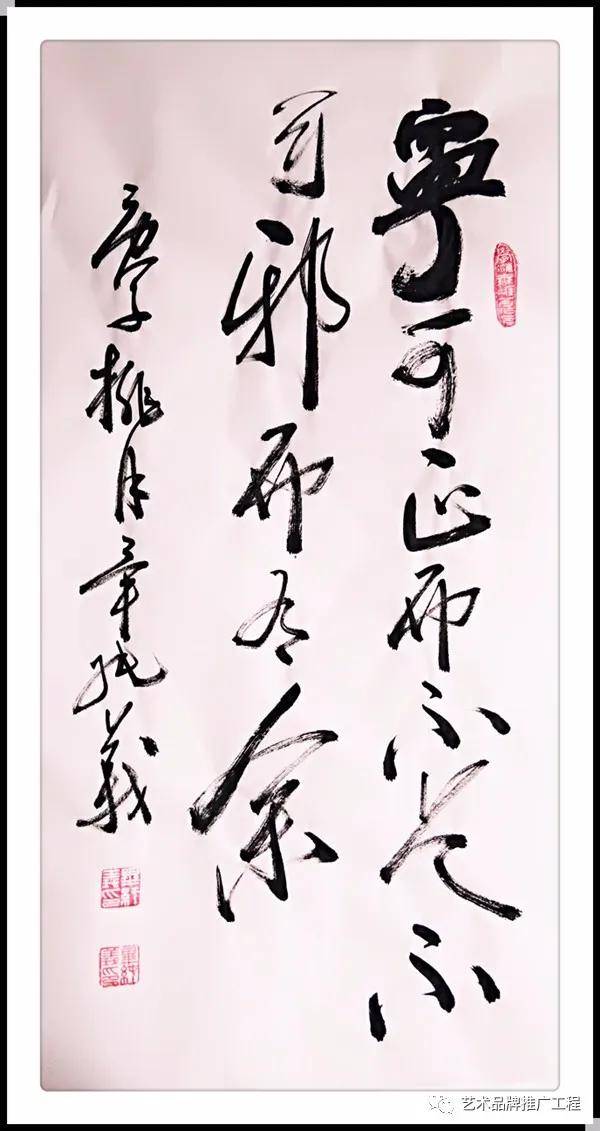 寧可正而不足不
可邪而有余
庚子桃月章義
艺术品牌推广工程